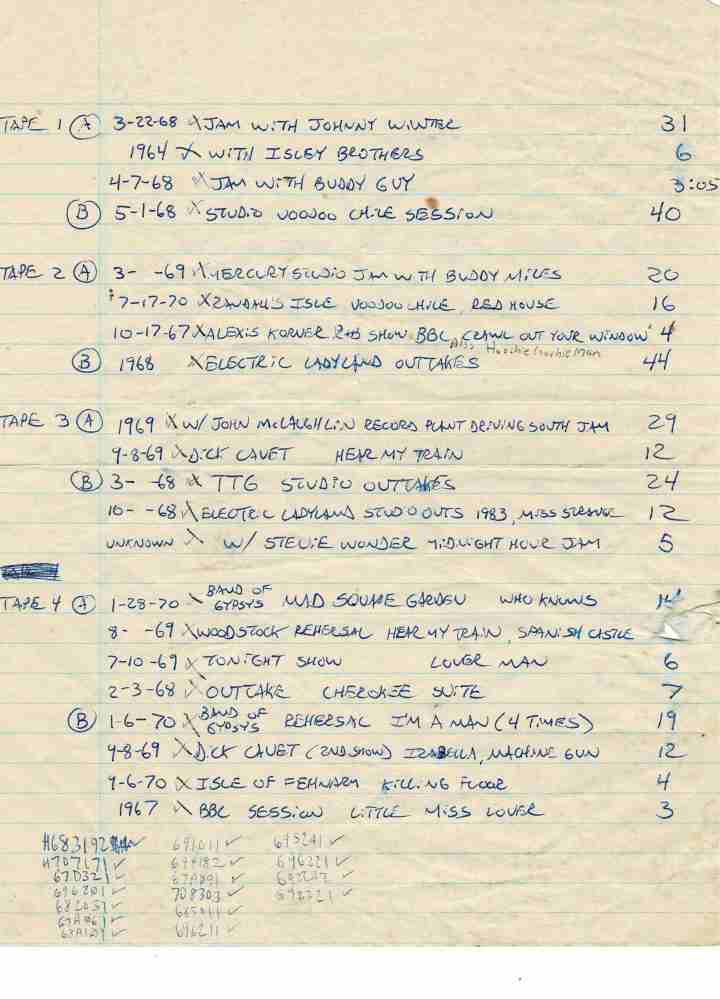 TAPE 1 A 3-22-68 X JAM WITH JOHNNY WINTER 31
1964 X WITH ISLEY BROTHERS 6
4-7-68 X JAM WITH BUDDY GUY 3:05
B 5-1-68 X STUDIO VOODOO CHILE SESSION 40
TAPE 2 A 3- -69 X MERCURY STUDIO JAM WITH BUDDY MILES 20
7-17-70 X RANDALL'S ISLE VOODOO CHILE, RED HOUSE 16
10-17-67 X ALEXIS KORNER R+B SHOW BBC, CRAWL OUT YOUR WINDOW 4
Also Hoochie Coochie Man
B 1968 X ELECTRIC LADYLAND OUTTAKES 44
TAPE 3 A 1969 X W/ JOHN MCLAUGHLIN RECORD PLANT DRIVING SOUTH JAM 29
9-8-69 X DICK CAVET HEAR MY TRAIN 12
B 3- -68 X TTG STUDIO OUTTAKES 24
10- -68 X ELECTRIC LADYLAND STUDIO OUTS 1983, MISS STRANGE 12
UNKNOWN X W/ STEVIE WONDER MIDNIGHT HOUR JAM 5
TAPE 4 A 1-28-70 X BAND OF GYPSYS MAD SQUARE GARDEN WHO KNOWS 14
8- -69 X WOODSTOCK REHERSAL HEAR MY TRAIN, SPANISH CASTLE
7-10-69 X TONIGHT SHOW LOVER MAN 6
2-3-68 X OUTTAKE CHEROKEE SUITE 7
B 1-6-70 X BAND OF GYPSYS REHERSAL I'M A MAN (4 TIMES) 19
9-8-69 X DICK CAVET (2ND SHOW) IZABELLA, MACHINE GUN 12
9-6-70 X ISLE OF FEHMARN KILLING FLOOR 4
1967 X BBC SESSION LITTLE MISS LOVER 3
H683192 ✓ 691011 ✓ 695241 ✓
H707171 ✓ 699182 ✓ 696221 ✓
67D321 ✓ 67A891 ✓
696201 ✓ 708303 ✓
682051 ✓ 685011 ✓
696211 ✓